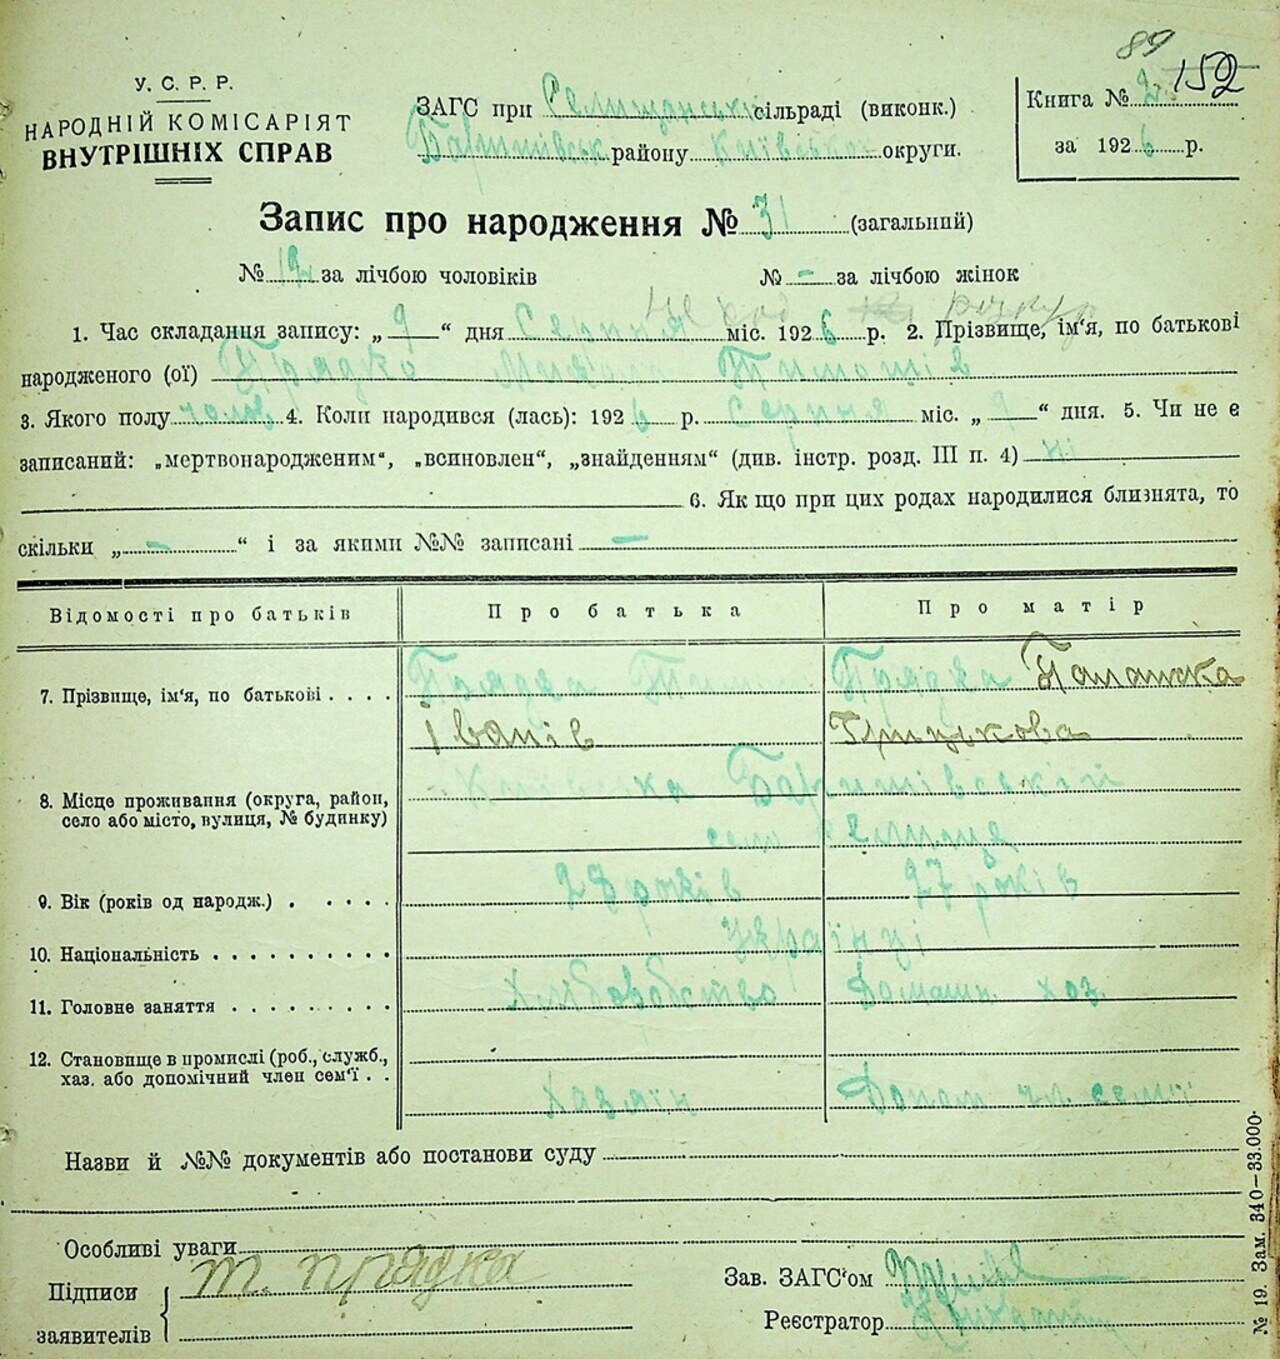 89 152
У. С. Р. Р.
НАРОДНІЙ КОМІСАРІЯТ
ВНУТРІШНІХ СПРАВ
ЗАГС при Селищанській сільраді (виконк.)
Баришівськ району Київської округи.
Книга № 2
за 1926 р.
Запис про народження № 31 (загальний)
№ 12 за лічбою чоловіків № – за лічбою жінок
1. Час складання запису: „ 9 “ дня Серпня міс. 1926 р. 2. Прізвище, ім‘я, по батькові
народженого (ої) Прядко Тимошів
3. Якого полу чолов 4. Коли народився (лась): 1926 р. Серпня міс. „ 9 “ дня. 5. Чи не є
записаний: „мертвонародженим“, „всиновлен“, „знайденням“ (див. інстр. розд. III п. 4) ні
6. Як що при цих родах народилися близнята, то
скільки „ – “ і за якими №№ записані –
Відомості про батьків Про батька Про матір
7. Прізвище, ім‘я, по батькові . . . . Прядка Прядка Палажка
Іванів Грицькова
8. Місце проживання (округа, район, Баришівський
село або місто, вулиця, № будинку) село Селища
9. Вік (років од народж.) . . . . . 28 років 27 років
10. Національність . . . . . . . . . . Українці
11. Головне заняття . . . . . . . . . Хліборобство Домашн. хоз.
12. Становище в промислі (роб., служб.,
хаз. або допомічний член сем‘ї . . Хазяїн Допом чл. семії
Назви й №№ документів або постанови суду
Особливі уваги
Підписи
заявителів
Т. Прядка
Зав. ЗАГС‘ом
Реєстратор
№ 19. Зам. 340—33.000.